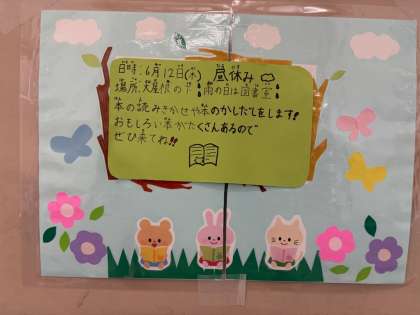 日時:6月12日(木) 昼休み
場所:大屋根の下 雨の日は図書室
本の読みきかせや本のかしだしをします!!
おもしろい本がたくさんあるので
ぜひ来てね!!